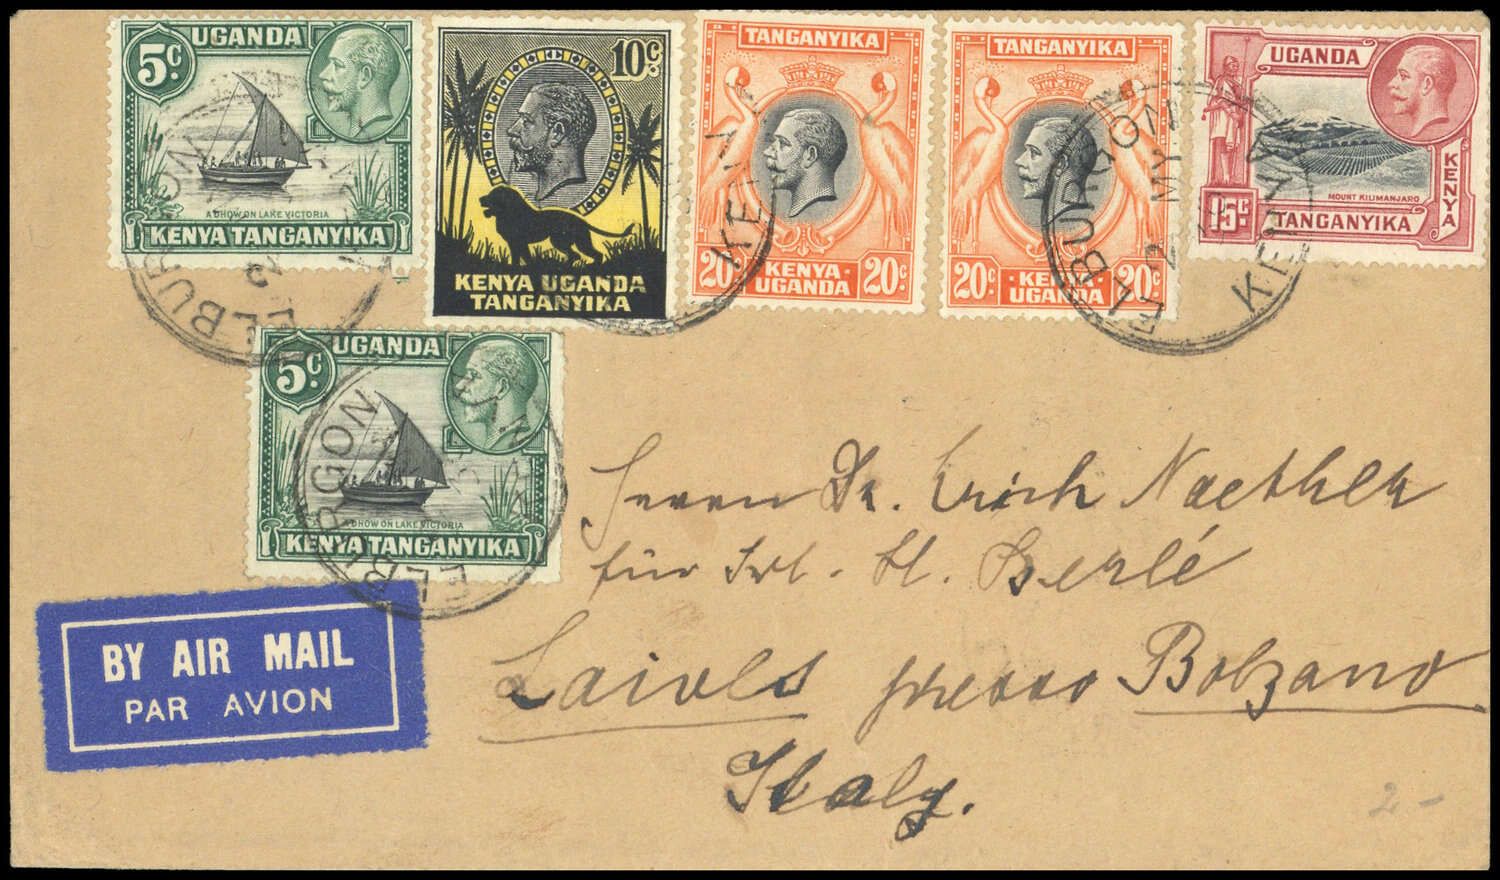 UGANDA
5c.
A DHOW ON LAKE VICTORIA
KENYA TANGANYIKA
10c.
KENYA UGANDA
TANGANYIKA
TANGANYIKA
20c KENYA · UGANDA 20c
TANGANYIKA
20c KENYA · UGANDA 20c
UGANDA
MOUNT KILIMANJARO
KENYA
15c TANGANYIKA
ELBURGON
KENYA
ELBURGON
MY
KENYA
UGANDA
5c.
A DHOW ON LAKE VICTORIA
KENYA TANGANYIKA
ELBURGON
BY AIR MAIL
PAR AVION
Herrn Dr. Erich Naethер
für Frl. H. Berlé
Laivls presso Bolzano
Italy.
2-